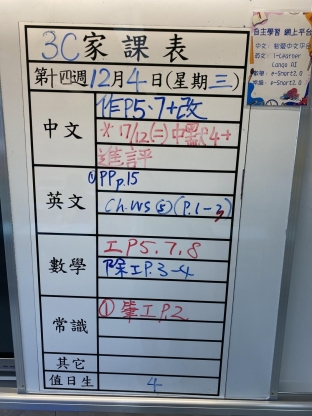 3C家課表
第十四週12月4日(星期三)
中文
作P5、7+改
※17/12(二)中默4+
進評
英文
①PP p.15
Ch.WS⑤(P.1-3)
數學
工P5、7、8
除工P.3-4
常識
①肇工P.2
其它
值日生
4
自主學習 網上平台
中文:
英文: i-Learner
數學: e-Smart2.0
e-Smart2.0